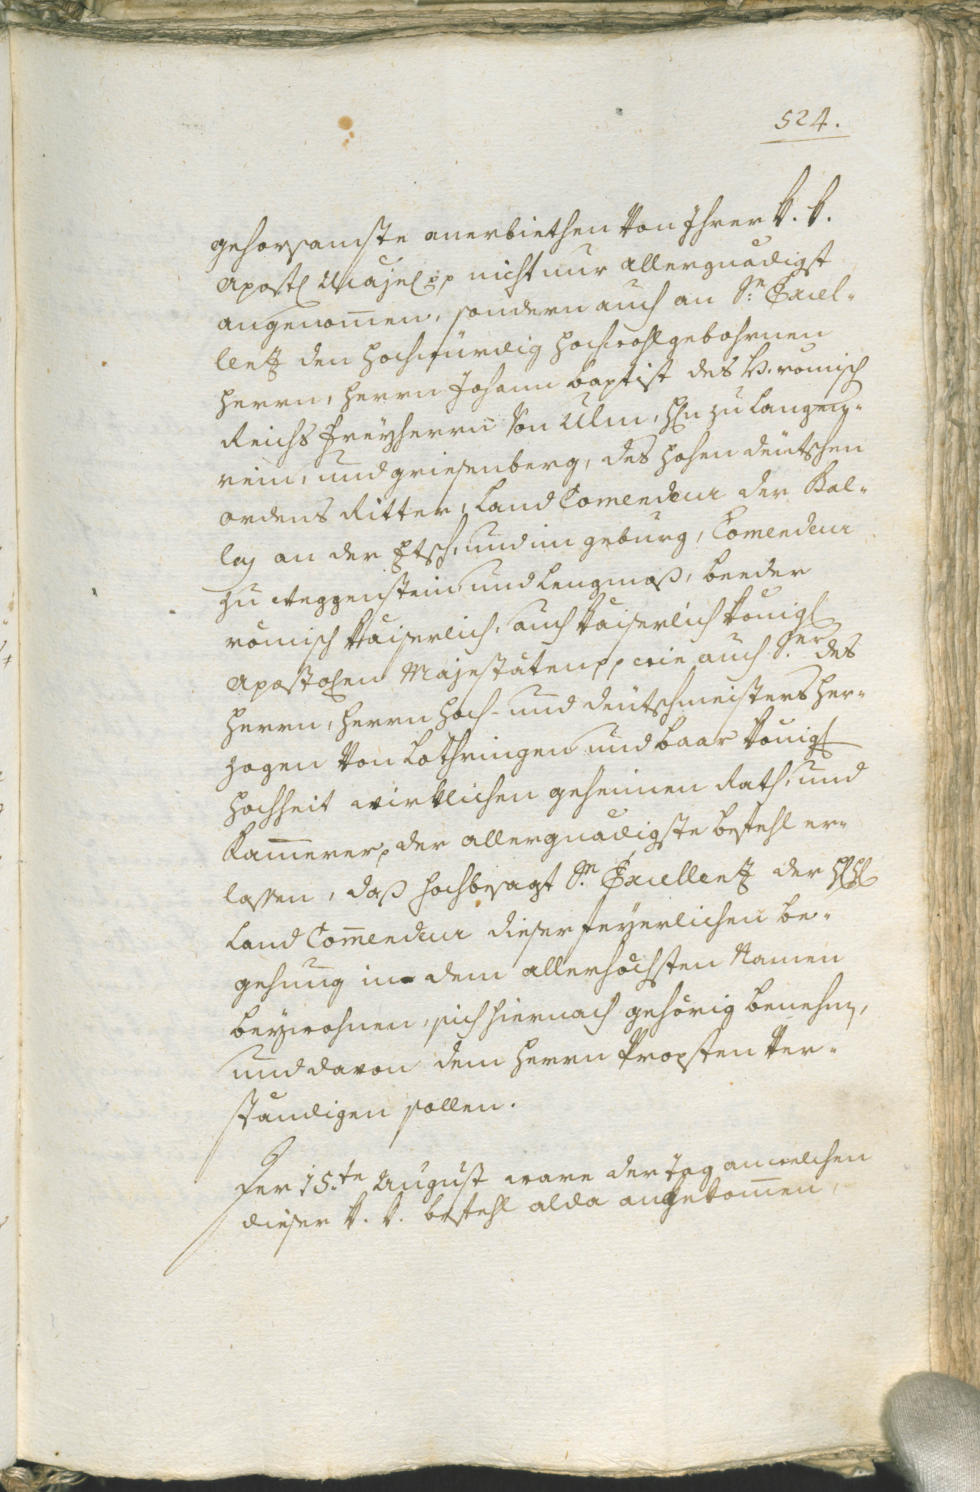 524.
gehorsamste anerbiethen Von Ihrer k. k.
Apost. Majest. pp nicht nur allergnädigst
angenom̅en, sondern auch an Sr. Excel-
lentz den hochwürdig hochwohlgebohrnen
herrn, herrn Johann baptist des h. römisch
Reichs freÿherrn Von Ulm, hrn zu Langen-
rein, und griesenberg, des hohen deütschen
ordens Ritter, Land Comendeur der Bal-
leÿ an der Etsch, und im gebürg, Comendeur
zu Weggenstein und Lengmoß, beeder
römisch kaiserlich, auch kaiserlich königl
Apostolen Majestäten pp wie auch Sr. des
herrn, herrn hoch- und deütschmeisters her-
zogen Von Lothringen und baar königl
hochheit wirklichen geheimen Rath, und
Kam̅erer, der allergnädigste befehl er-
lassen, daß hochbesagt Sr. Excellentz der
Land Com̅endeur dieser feÿerlichen be-
gehung in dem allerhöchsten Namen
beÿwohnen, sich hiernach gehörig benehmen,
und davon dem herrn Propsten Ver-
ständigen sollen.
Der 15.te August ware der tag an welchen
dieser k. k. befehl alda angekom̅en,